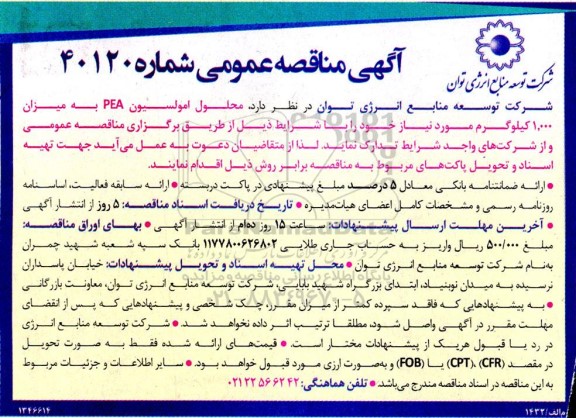 آگهی مناقصه عمومی شماره ۴۰۱۲۰
شرکت توسعه منابع انرژی توان
شرکت توسعه منابع انرژی توان در نظر دارد، محلول امولسیون PEA به میزان
۱,۰۰۰ کیلوگرم مورد نیاز خود را با شرایط ذیل از طریق برگزاری مناقصه عمومی
و از شرکت‌های واجد شرایط تدارک نماید. لذا از متقاضیان دعوت به عمل می‌آید جهت تهیه
اسناد و تحویل پاکت‌های مربوط به مناقصه برابر روش ذیل اقدام نمایند.
● ارائه ضمانتنامه بانکی معادل ۵ درصد مبلغ پیشنهادی در پاکت دربسته ● ارائه سابقه فعالیت، اساسنامه
روزنامه رسمی و مشخصات کامل اعضای هیات‌مدیره ● تاریخ دریافت اسناد مناقصه: ۵ روز از انتشار آگهی
● آخرین مهلت ارسال پیشنهادات: ساعت ۱۵ روز ده‌ام از انتشار آگهی ● بهای اوراق مناقصه:
مبلغ ۵۰۰/۰۰۰ ریال واریز به حساب جاری طلایی ۱۱۷۷۸۰۰۶۲۶۸۰۲ بانک سپه شعبه شهید چمران
به‌نام شرکت توسعه منابع انرژی توان ● محل تهیه اسناد و تحویل پیشنهادات: خیابان پاسداران
نرسیده به میدان نوبنیاد، ابتدای بزرگراه شهید بابایی، شرکت توسعه منابع انرژی توان، معاونت بازرگانی
● به پیشنهادهایی که فاقد سپرده کمتر از میزان مقرر، چک شخصی و پیشنهادهایی که پس از انقضای
مهلت مقرر در آگهی واصل شود، مطلقا ترتیب اثر داده نخواهد شد. ● شرکت توسعه منابع انرژی
در رد یا قبول هریک از پیشنهادات مختار است. ● قیمت‌های ارائه شده فقط به صورت تحویل
در مقصد (CFR)، (CPT) یا (FOB) و به‌صورت ارزی مورد قبول خواهد بود. ● سایر اطلاعات و جزئیات مربوط
به این مناقصه در اسناد مناقصه مندرج می‌باشد ● تلفن هماهنگی: ۰۲۱۲۲۵۶۶۲۴۲
۱۳۴۶۶۱۴
م‌الف/۱۴۳۲